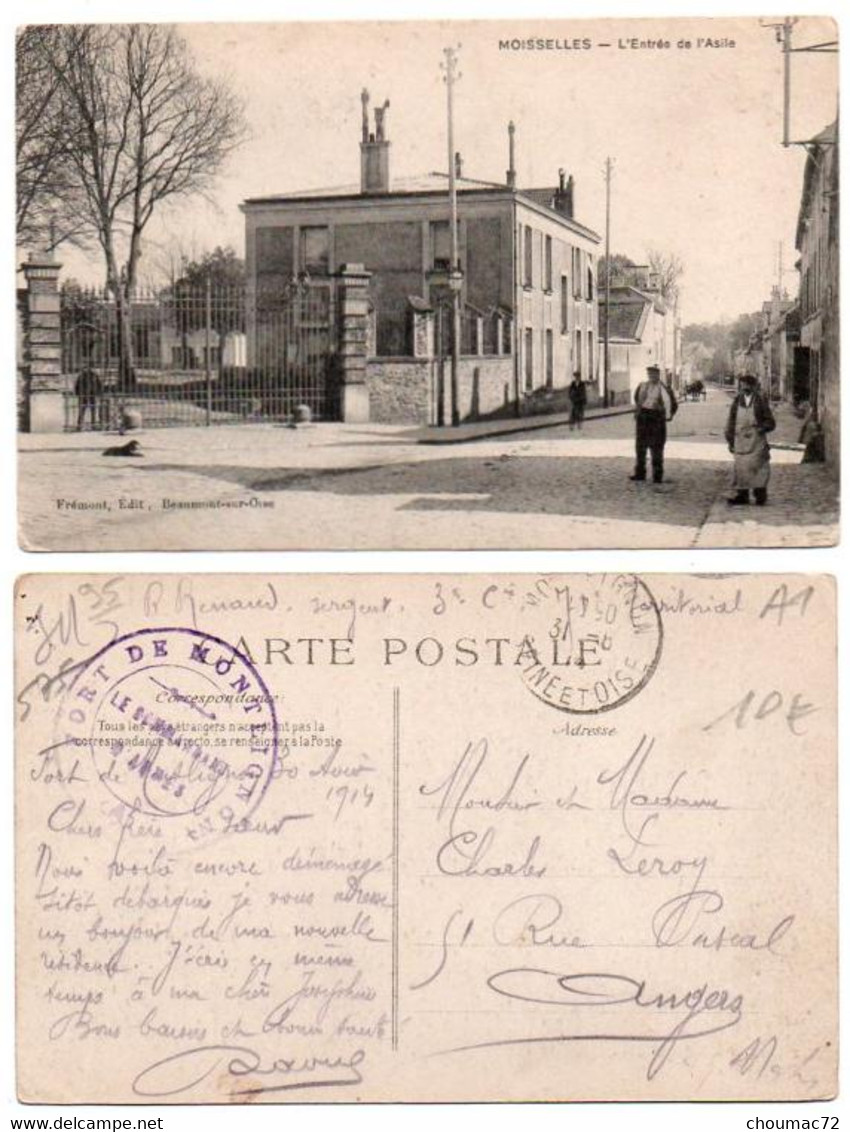 MOISSELLES — L'Entrée de l'Asile
Frémont, Édit, Beaumont-sur-Oise
R Renaud, sergent, 3e Cie Territorial A1
CARTE POSTALE
Correspondance:
Tous les pays étrangers n'acceptent pas la
correspondance au recto, se renseigner à la Poste
FORT DE MONTLIGNON
LE
D'ARMES
MONTLIGNON
31 -8
SEINE ET OISE
Adresse
10€
Fort de Montlignon 30 Août
1914
Chers frère et Soeur
Nous voilà encore déménagé
Sitôt débarqués je vous adresse
un bonjour de ma nouvelle
résidence. J'écris en même
temps à ma chère Joséphine
Bons baisers et bonne santé
Raoul
Monsieur et Madame
Charles Leroy
51 Rue Pascal
Angers
delcampe.net
choumac72